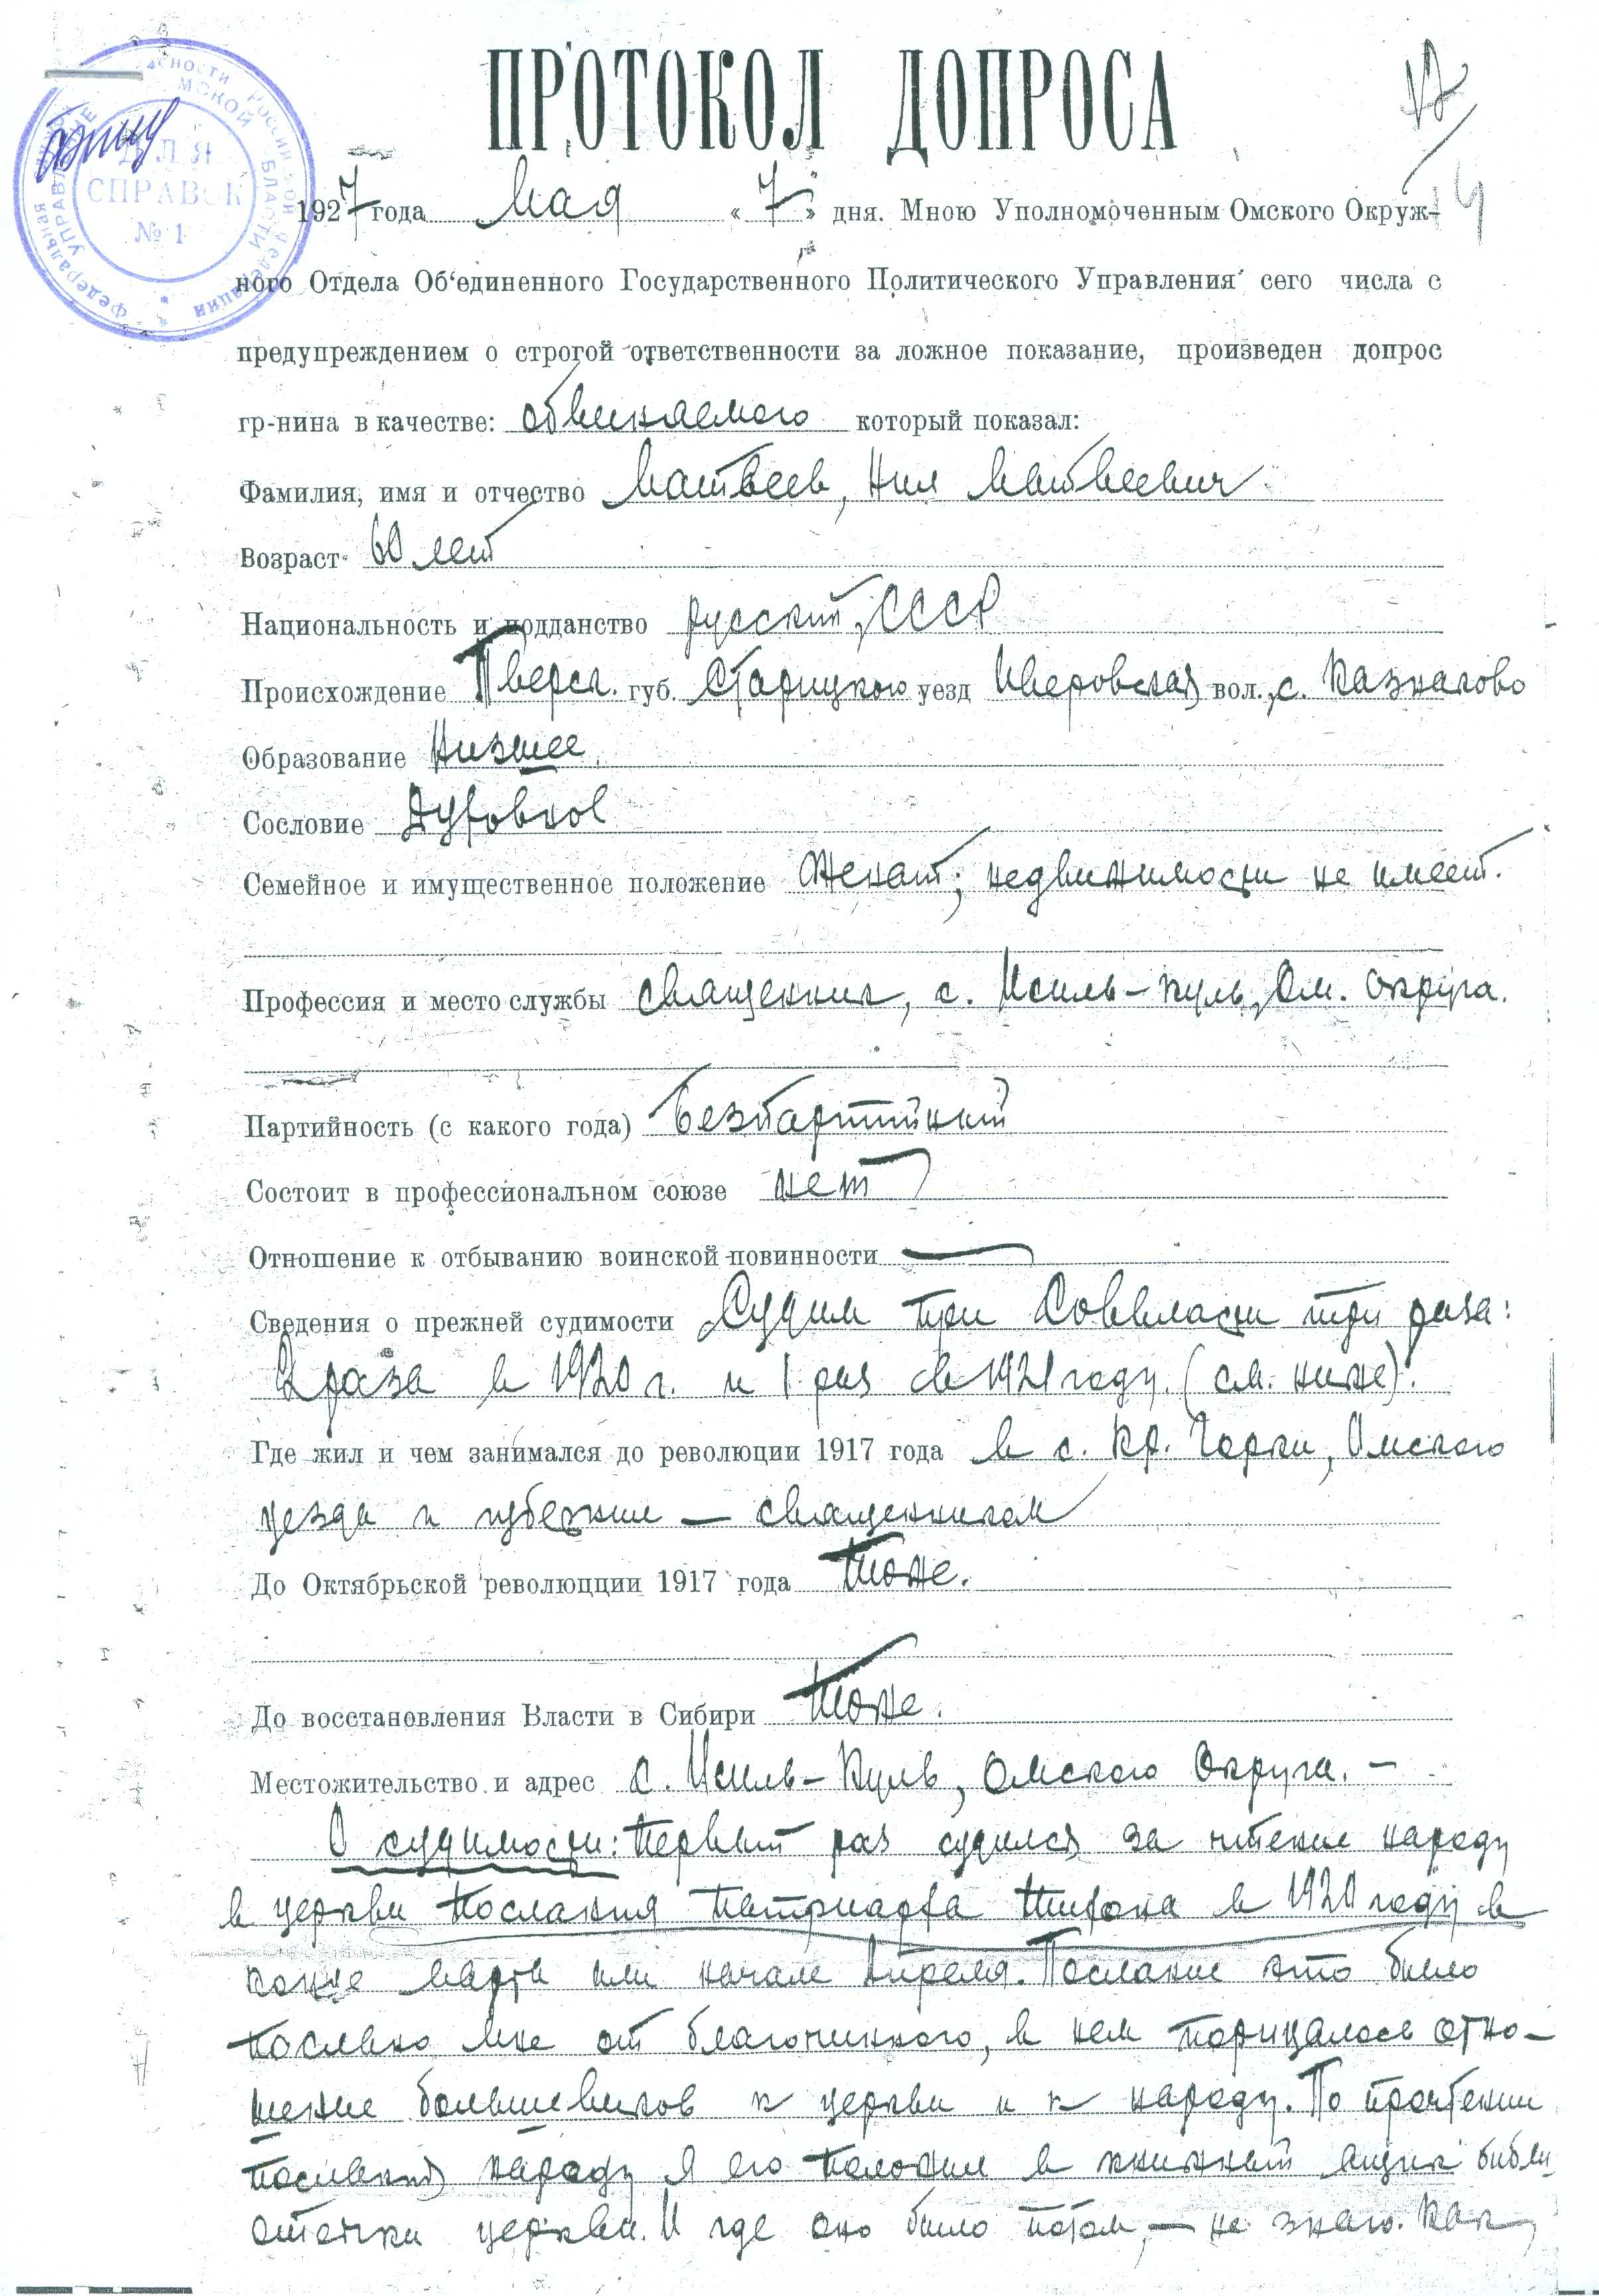 ПРОТОКОЛ ДОПРОСА
ДЛЯ
СПРАВОК
№ 1
1927 года Мая « 7 » дня. Мною Уполномоченным Омского Окруж-
ного Отдела Об‘единенного Государственного Политического Управления сего числа с
предупреждением о строгой ответственности за ложное показание, произведен допрос
гр-нина в качестве: обвиняемого который показал:
Фамилия, имя и отчество Матвеев, Нил Матвеевич
Возраст 60 лет
Национальность и подданство русский, СССР
Происхождение Тверск. губ. Старицкого уезд Иверовская вол., с. Казнаково
Образование Низшее
Сословие Духовное
Семейное и имущественное положение Женат; недвижимости не имеет.
Профессия и место службы священник, с. Исиль-Куль, Ом. Округа.
Партийность (с какого года) Безпартийный
Состоит в профессиональном союзе нет
Отношение к отбыванию воинской повинности —
Сведения о прежней судимости Судим при Соввласти три раза:
2 раза в 1920 г. и 1 раз в 1921 году. (см. ниже).
Где жил и чем занимался до революции 1917 года в с. Кр. Горки, Омского
уезда и губернии — священником
До Октябрьской революцции 1917 года Тоже.
До восстановления Власти в Сибири Тоже.
Местожительство и адрес с. Исиль-Куль, Омского Округа. —
О судимости: Первый раз судился за чтение народу
в церкви Послания Патриарха Тихона в 1920 году в
конце Марта или начале Апреля. Послание это было
послано мне от благочинного, в нем порицалось отно-
шение большевиков к церкви и к народу. По прочтении
послания народу я его положил в книжный ящик библи
отечки церкви. И где оно было потом, — не знаю. Как